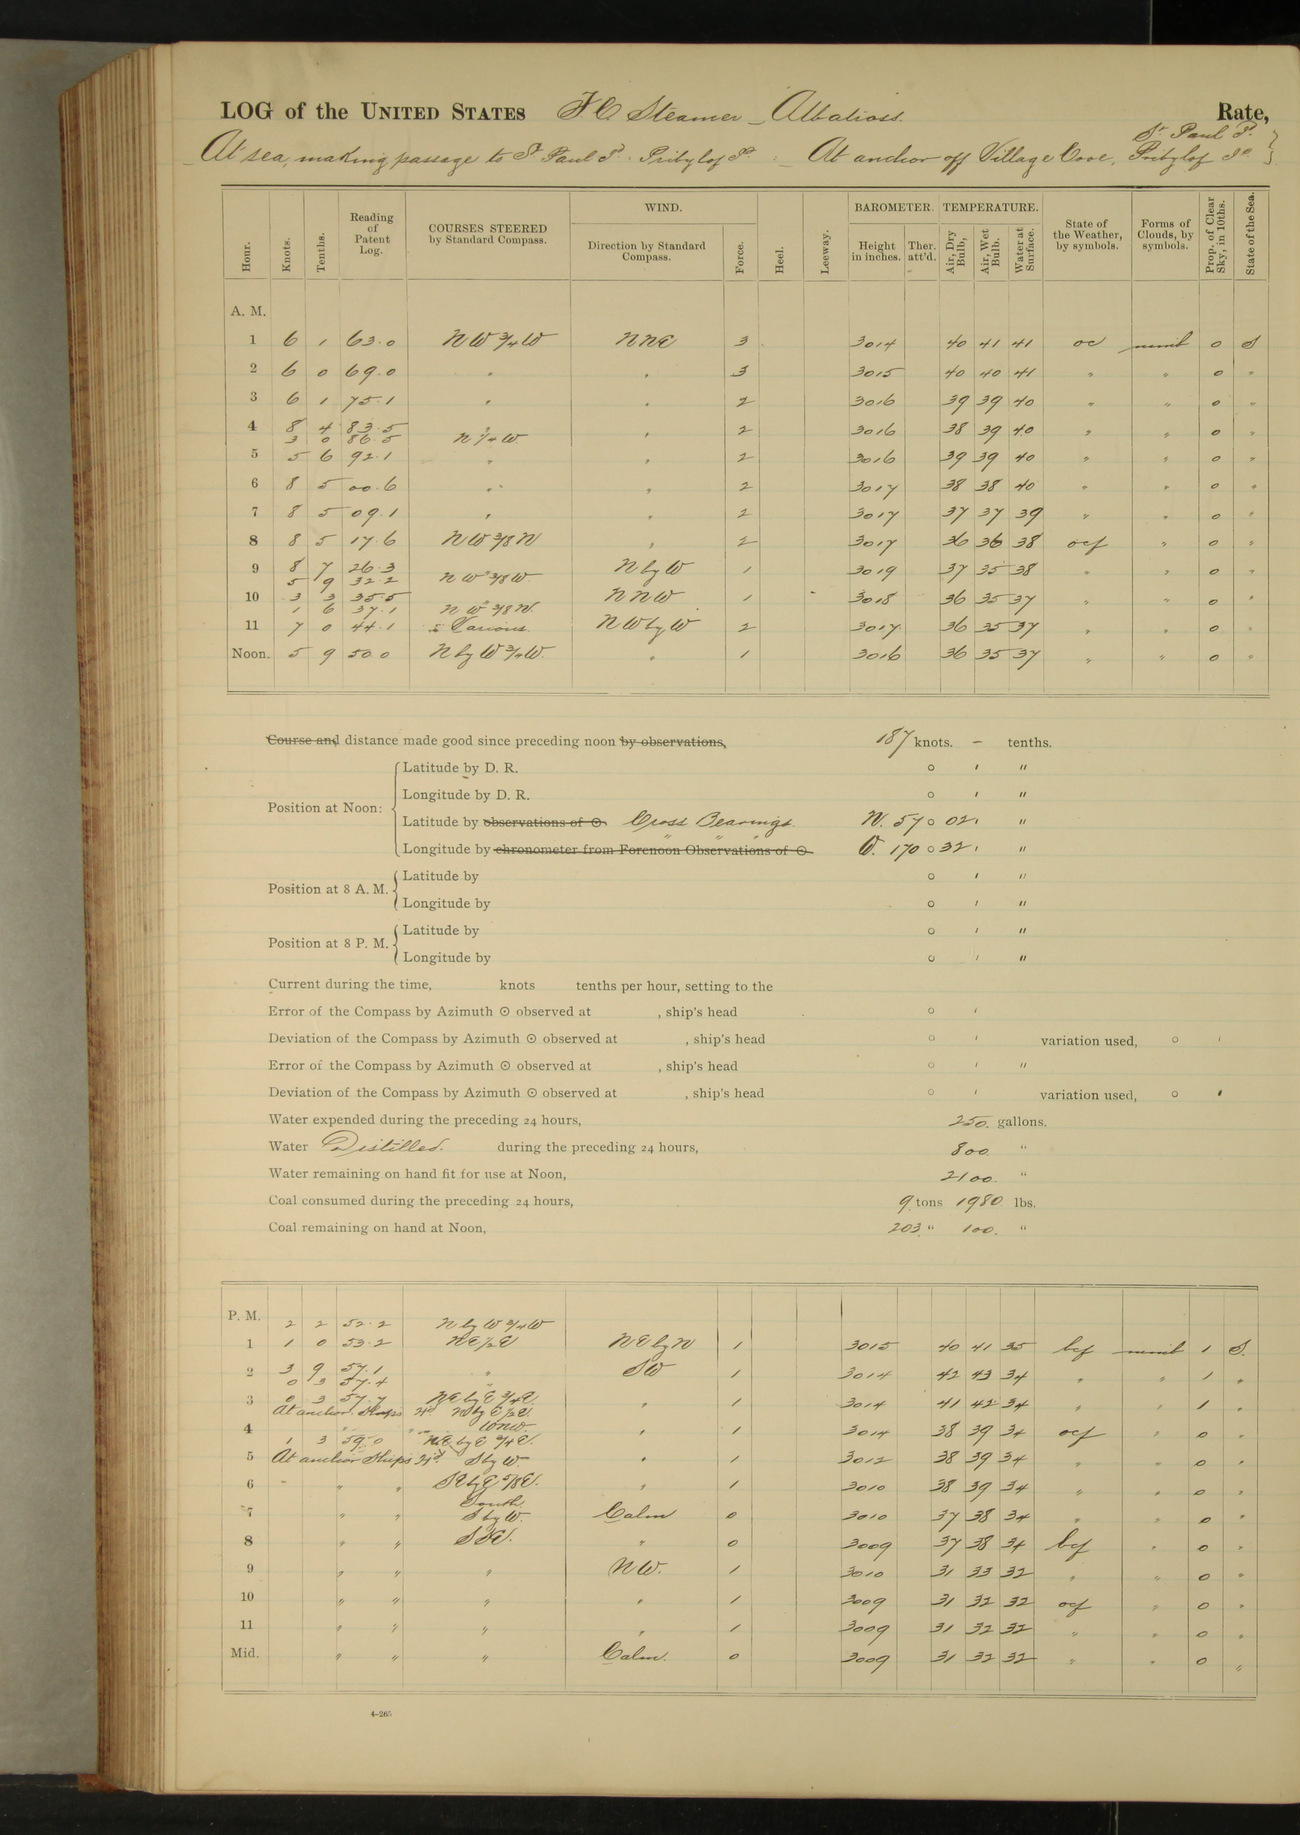 LOG of the UNITED STATES F.C. Steamer Albatross. Rate,
At sea, making passage to St. Paul Id. Pribylof Is. : At anchor off Village Cove, St. Paul Id. Pribylof Is.
Hour. Knots. Tenths. Reading of Patent Log. COURSES STEERED by Standard Compass. WIND. Direction by Standard Compass. Force. Heel. Leeway. BAROMETER. Height in inches. Ther. att'd. TEMPERATURE. Air, Dry Bulb, Air, Wet Bulb. Water at Surface. State of the Weather, by symbols. Forms of Clouds, by symbols. Prop. of Clear Sky, in 10ths. State of the Sea.
A. M.
1 6 1 63.0 NW 3/4 W NNE 3 30.14 40 41 41 oc nimb 0 S
2 6 0 69.0 " " 3 30.15 40 40 41 " " 0 "
3 6 1 75.1 " " 2 30.16 39 39 40 " " 0 "
4 8 4 83.5 " 2 30.16 38 39 40 " " 0 "
3 0 86.5 N 1/4 W
5 5 6 92.1 " " 2 30.16 39 39 40 " " 0 "
6 8 5 00.6 " " 2 30.17 38 38 40 " " 0 "
7 8 5 09.1 " " 2 30.17 37 37 39 " " 0 "
8 8 5 17.6 NW 3/8 N " 2 30.17 36 36 38 ocf " 0 "
9 8 7 26.3 " N by W 1 30.19 37 35 38 " " 0 "
5 9 32.2 NW 3/8 W
10 3 3 35.5 " NNW 1 30.18 36 35 37 " " 0 "
1 6 37.1 NW 3/8 W.
11 7 0 44.1 & Various. NW by W 2 30.17 36 35 37 " " 0 "
Noon. 5 9 50.0 N by W 3/4 W. " 1 30.16 36 35 37 " " 0 "
Course and distance made good since preceding noon by observations, 187 knots. - tenths.
Position at Noon:
Latitude by D. R. ° ′ ″
Longitude by D. R. ° ′ ″
Latitude by observations of ☉ Cross Bearings. N. 57 ° 02 ′ ″
Longitude by chronometer from Forenoon Observations of ☉ " " " W. 170 ° 32 ′ ″
Position at 8 A. M.
Latitude by ° ′ ″
Longitude by ° ′ ″
Position at 8 P. M.
Latitude by ° ′ ″
Longitude by ° ′ ″
Current during the time, knots tenths per hour, setting to the
Error of the Compass by Azimuth ☉ observed at , ship's head ° ′
Deviation of the Compass by Azimuth ☉ observed at , ship's head ° ′ variation used, ° ′
Error of the Compass by Azimuth ☉ observed at , ship's head ° ′ ″
Deviation of the Compass by Azimuth ☉ observed at , ship's head ° ′ variation used, ° ′
Water expended during the preceding 24 hours, 250. gallons.
Water Distilled. during the preceding 24 hours, 800 "
Water remaining on hand fit for use at Noon, 2100. "
Coal consumed during the preceding 24 hours, 9 tons 1980 lbs.
Coal remaining on hand at Noon, 203. " 100. "
P. M.
2 2 52.2 N by W 3/4 W
1 1 0 53.2 NE 1/2 E NE by N 1 30.15 40 41 35 bcf nimb 1 S.
2 3 9 57.1 " SW 1 30.14 42 43 34 " " 1 "
0 3 57.4 "
3 0 3 57.7 NE by E 3/4 E. " 1 30.14 41 42 34 " " 1 "
At anchor. Ships Hd. N by E 1/2 E.
4 " " WNW. " 1 30.14 38 39 34 ocf " 0 "
1 3 59.0 NE by E 3/4 E.
5 At anchor Ships Hd. S by W. " 1 30.12 38 39 34 " " 0 "
6 " " SE by E 5/8 E. " 1 30.10 38 39 34 " " 0 "
South.
7 " " S by W. Calm 0 30.10 37 38 34 " " 0 "
8 " " SSE. " 0 30.09 37 38 34 bcf " 0 "
9 " " " NW. 1 30.10 31 33 32 " " 0 "
10 " " " " 1 30.09 31 32 32 ocf " 0 "
11 " " " " 1 30.09 31 32 32 " " 0 "
Mid. " " " Calm. 0 30.09 31 32 32 " " 0 "
4-265